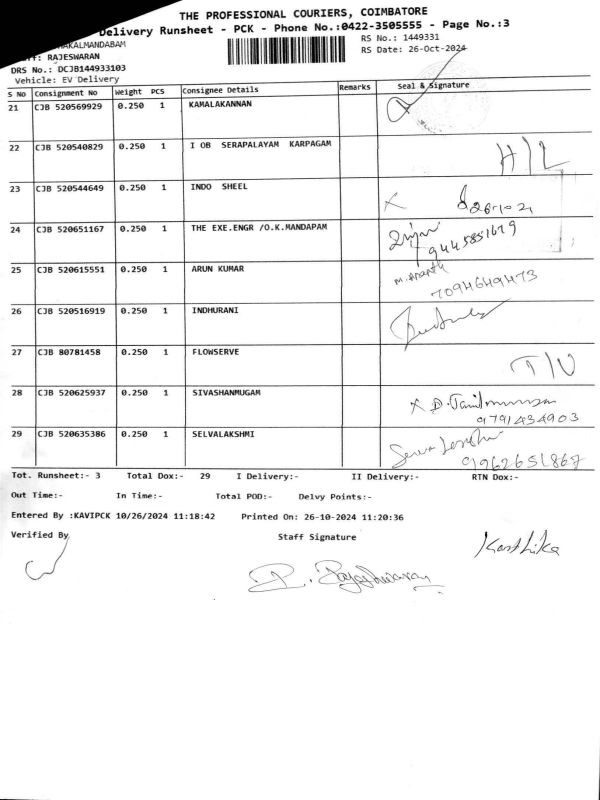 THE PROFESSIONAL COURIERS, COIMBATORE
Delivery Runsheet - PCK - Phone No.:0422-3505555 - Page No.:3
RS No.: 1449331
RS Date: 26-Oct-2024
AKALMANDABAM
: RAJESWARAN
DRS No.: DCJB144933103
Vehicle: EV Delivery
S No Consignment No Weight PCS Consignee Details Remarks Seal & Signature
21 CJB 520569929 0.250 1 KAMALAKANNAN
22 CJB 520540829 0.250 1 I OB SERAPALAYAM KARPAGAM H/L
23 CJB 520544649 0.250 1 INDO SHEEL
24 CJB 520651167 0.250 1 THE EXE.ENGR /O.K.MANDAPAM
9445851679
25 CJB 520615551 0.250 1 ARUN KUMAR M. Ananth
7094649473
26 CJB 520516919 0.250 1 INDHURANI
27 CJB 80781458 0.250 1 FLOWSERVE
28 CJB 520625937 0.250 1 SIVASHANMUGAM
9791434903
29 CJB 520635386 0.250 1 SELVALAKSHMI
9962651867
Tot. Runsheet:- 3 Total Dox:- 29 I Delivery:- II Delivery:- RTN Dox:-
Out Time:- In Time:- Total POD:- Delvy Points:-
Entered By :KAVIPCK 10/26/2024 11:18:42 Printed On: 26-10-2024 11:20:36
Verified By Staff Signature
Karthika
R. Rajeshwaran